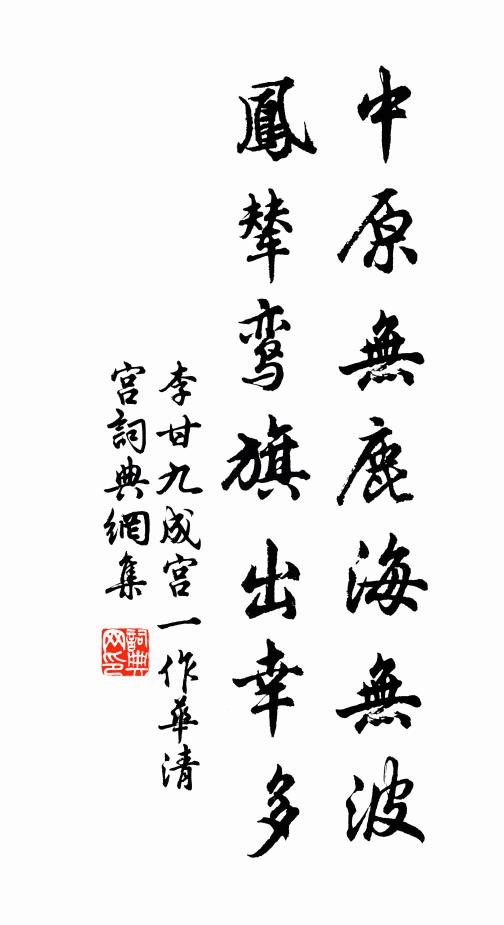 中原無鹿海無波
鳳輦鸾旗出幸多
李甘九成宫一作華清
宫詞典網集
詞典
网印